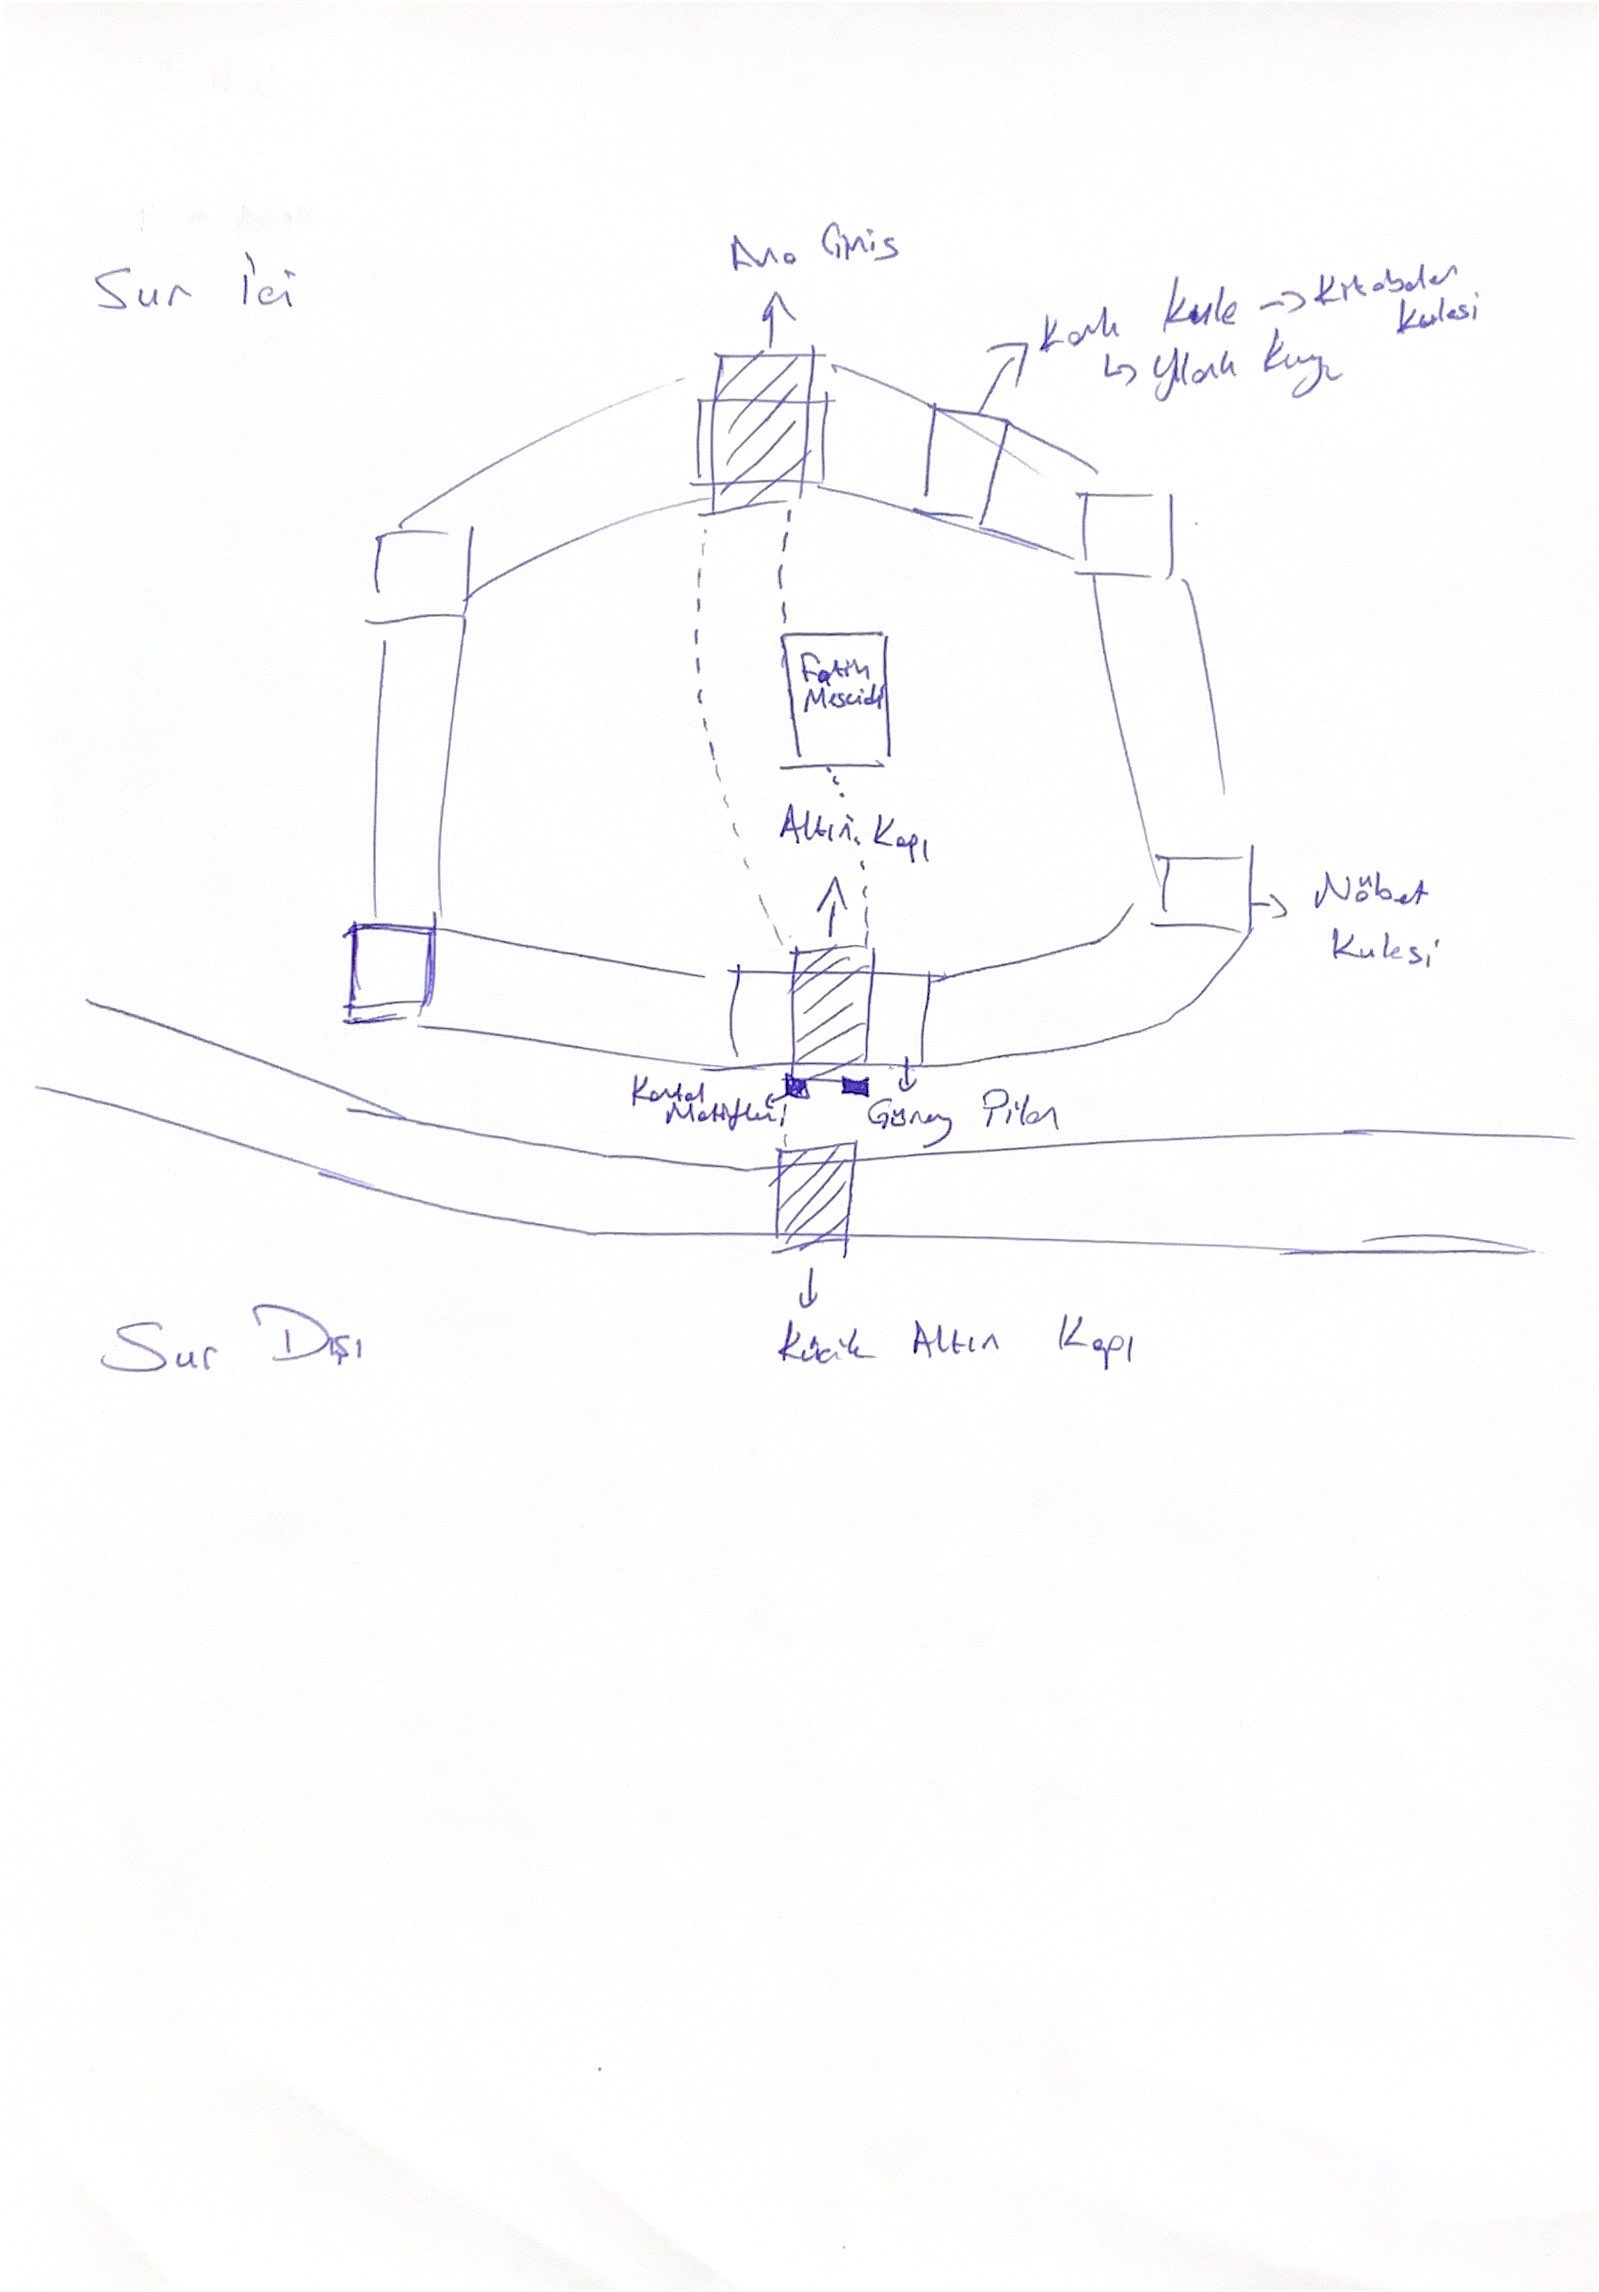 Sur İçi
Ana Giriş
Kanlı Kule → Kitabeler
Kulesi
↳ Yılanlı Kuyu
Fatih
Mescidi
Altın Kapı
Nöbet
Kulesi
Kartal
Motifleri
Güney Pilon
Küçük Altın Kapı
Sur Dışı